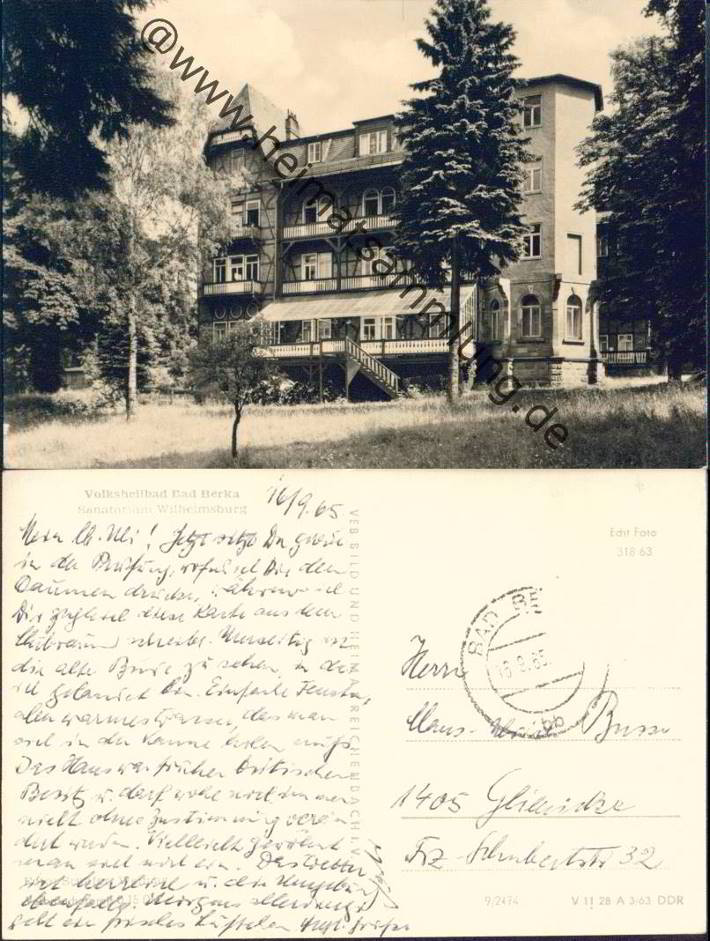 @www.heimatsammlung.de
Volksheilbad Bad Berka
Sanatorium Wilhelmsburg
16/9.65
Mein lb. Uli! Jetzt sitzt Du gerade
in der Prüfung, wofür ich Dir den
Daumen drücke, während ich
Dir zugleich diese Karte aus dem
schreibe. Umseitig ist
die alte zu sehen, in der
ich gelandet bin. Einfache Fenster,
allen warmes Wasser, das man
sich in der Kanne holen muß.
Das Haus war früher britischer
Besitz u. darf wohl noch immer
nicht ohne Zustimmung verän-
dert werden. Vielleicht gewöhnt
man sich noch ein. Das Wetter
ist herrlich u. die Umgebung
ebenfalls. Morgens allerdings
geht ein frisches Lüftchen. Herzl. Grüße
VEB BILD UND HEIMAT REICHENBACH I. V.
Echt Foto
318 63
BAD BE
16.9.65
bb
Herrn
Hans- Busse
1405 Glienicke
Frz-Schubertstr 32
9/2474
V 11 28 A 3/63 DDR